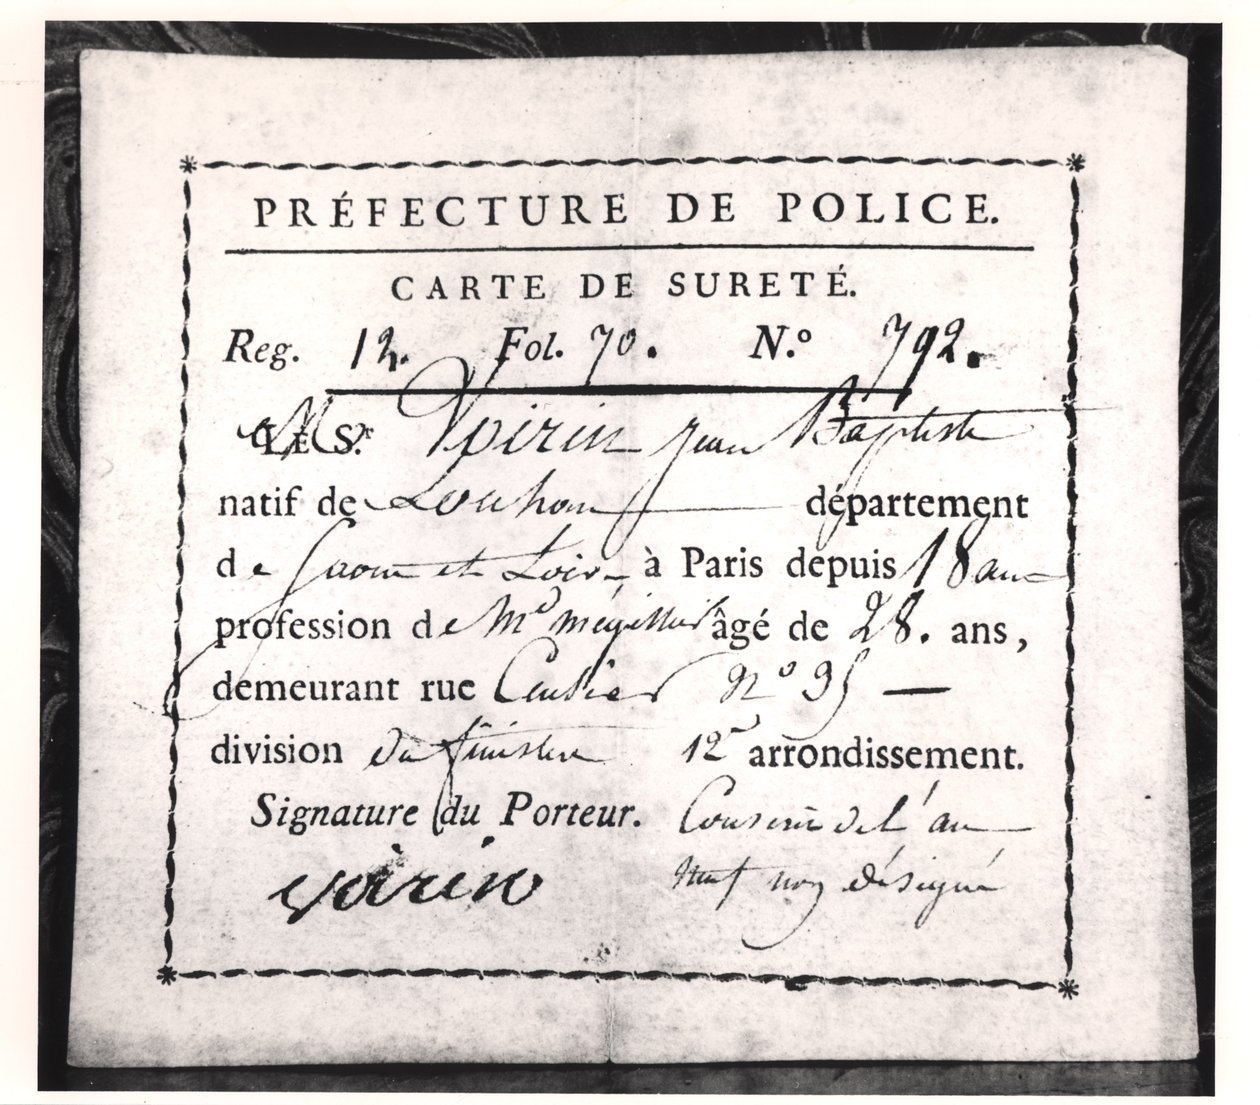 PRÉFECTURE DE POLICE.
CARTE DE SURETÉ.
Reg. 12. Fol. 70. N.º 792.
LE S.r Voirin jean Baptiste
natif de Louhan département
de Saone et Loire à Paris depuis 18 ans
profession de Md mégissier âgé de 28. ans,
demeurant rue Censier Nº 35
division du finistere 12e arrondissement.
Signature du Porteur. Conscrit de l'an
voirin neuf non désigné